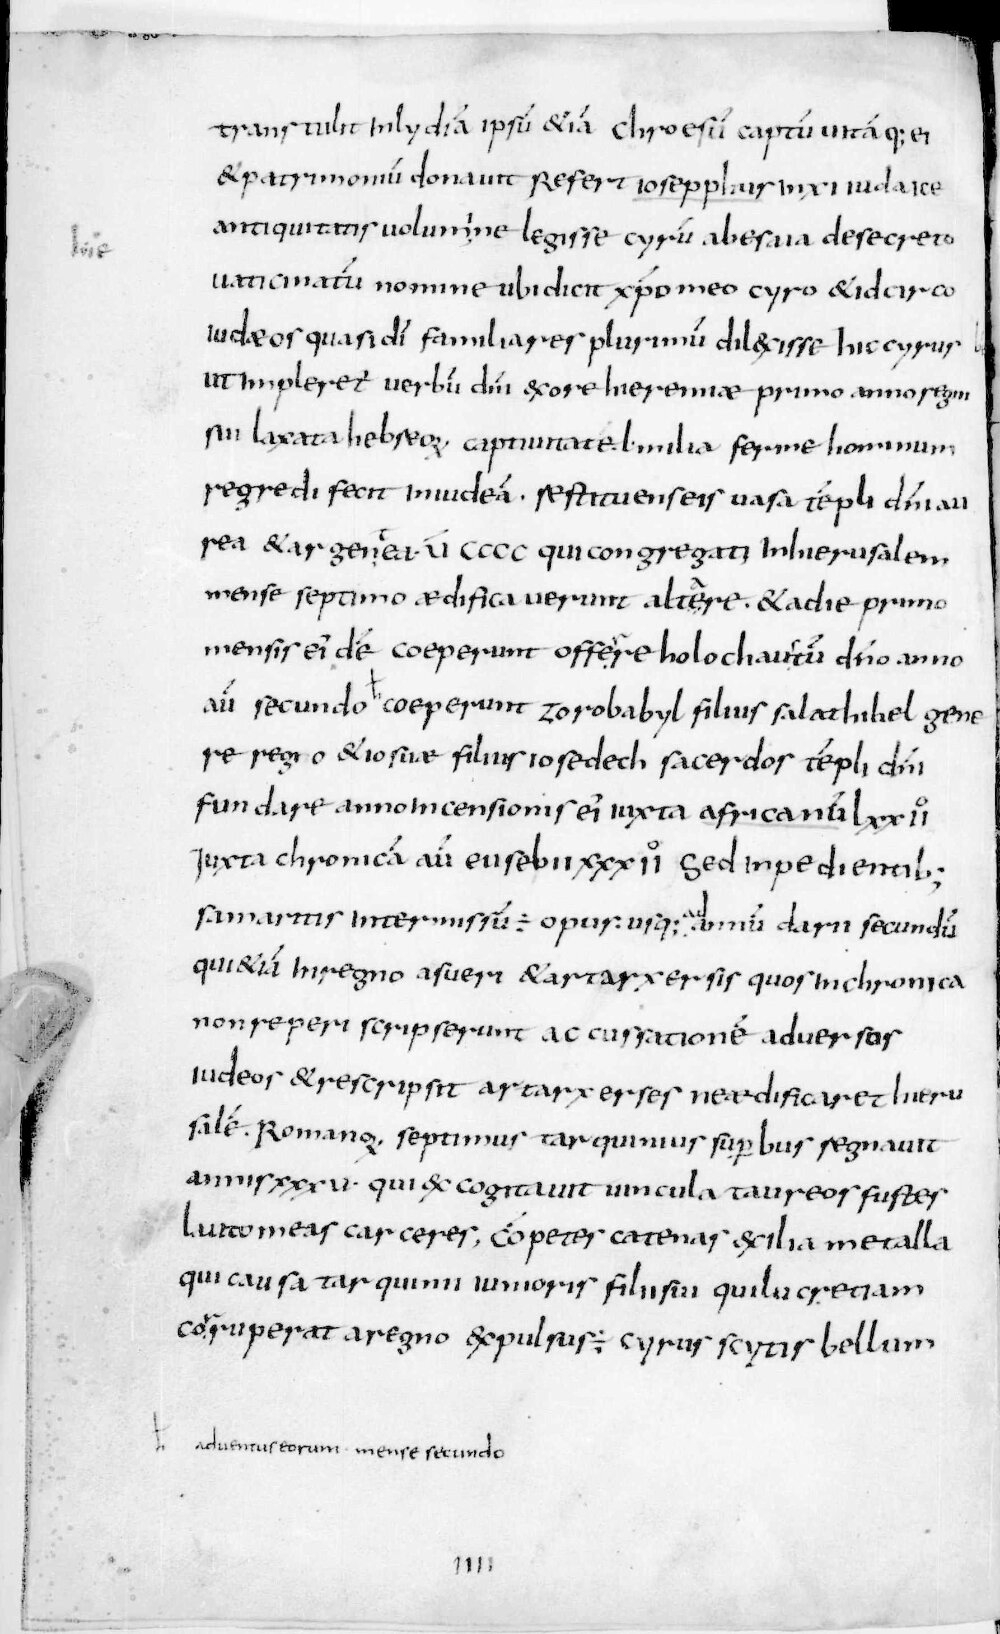 transtulit Inlydiā ipsū &iā Chroesū captū uitāq; ei
&patrimoniū donauit Refert iosepphus Inxi iudaice
antiquitatis uolumine legisse cyrū abesaia desecreto
uaticinatū nomine ubidicit xp̄o meo cyro &idcirco
iudæos quasidī familiares plurimū dil&xisse hic cyrus
ut Impleret᷑ uerbū dn̄i &xore hieremiæ primo anno regni
sui laxata hebreoꝝ captiuitate·l·milia ferme hominum
regredi fecit Iniudeā· restituens eis uasa tēpli dn̄i au
rea &argentea· u̅ CCCC qui congregati Inhierusalem
mense septimo ædificauerunt altare· &adie primo
mensis ei᷑ dē coeperunt offerre holochaustū dn̄o anno
aū secundo coeperunt zorobabyl filius salathihel gene
re regio &iosuæ filius iosedech sacerdos tēpli dn̄i
fundare anno Incensionis ei᷑ iuxta africanū lxxiiͦ
Iuxta chronicā aū eusebii xxxiiͦ Sed Inpedientib;
samaritis Intermissū ÷ opus· usq; ad annū darii secundū
qui &iā Inregno asueri &artarxersis quos Inchronica
non reperi scripserunt accussationē aduersus
iudeos &rescripsit artarxerses neædificaret hieru
salē· Romanoꝝ septimus tarquinius suꝑbus regnauit
annis xxxu· qui &xcogitauit uincula taureos fustes
lautomeas carceres, cōpetes catenas &xilia metalla
qui causa tarquinii iunioris filii sui qui lucretiam
corruperat aregno &xpulsus ÷ cyrus scytis bellum
aduentus eorum· mense secundo
IIII